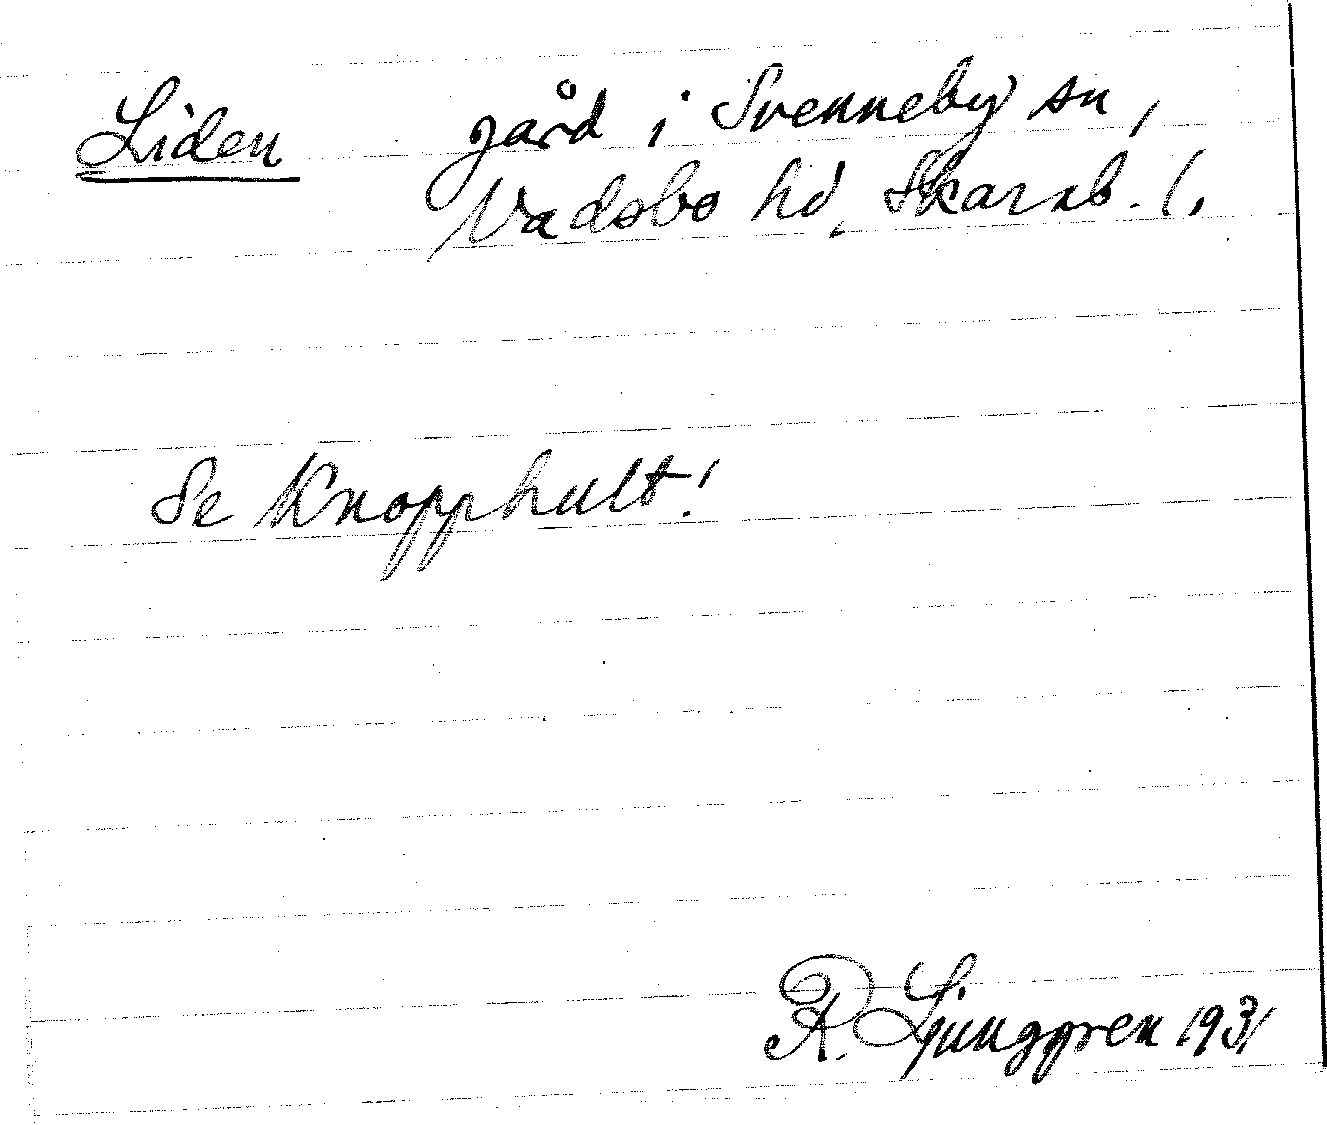 Liden gård i Svenneby sn,
Vadsbo hd, Skarab. l.
Se Knopphult!
R. Ljunggren 1931